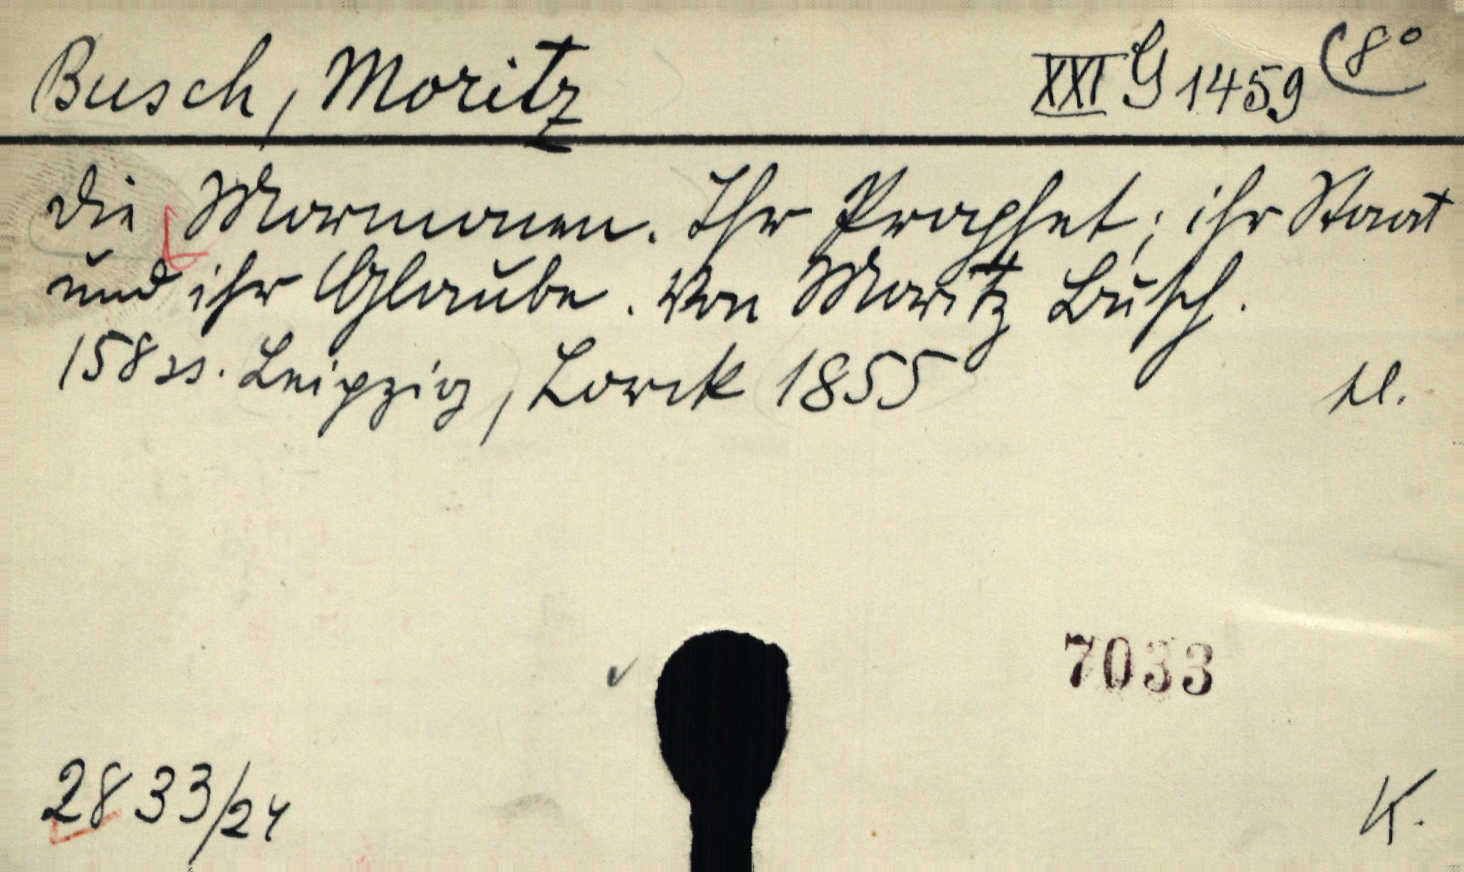 Busch, Moritz XXI G 1459 8°
Die Mormonen. Ihr Prophet; ihr Staat
und ihr Glaube. Von Moritz Busch.
158 ss. Leipzig, Lorck 1855
7033
2833/24 K.